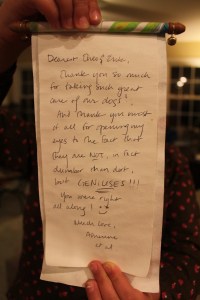 Thank you so much
for taking such great
care of our dogs!
And thank you most
of all for opening my
eyes to the fact that
they are NOT, in fact
dumber than dirt,
but GENIUSES!!!
You were right
all along!
Much love,